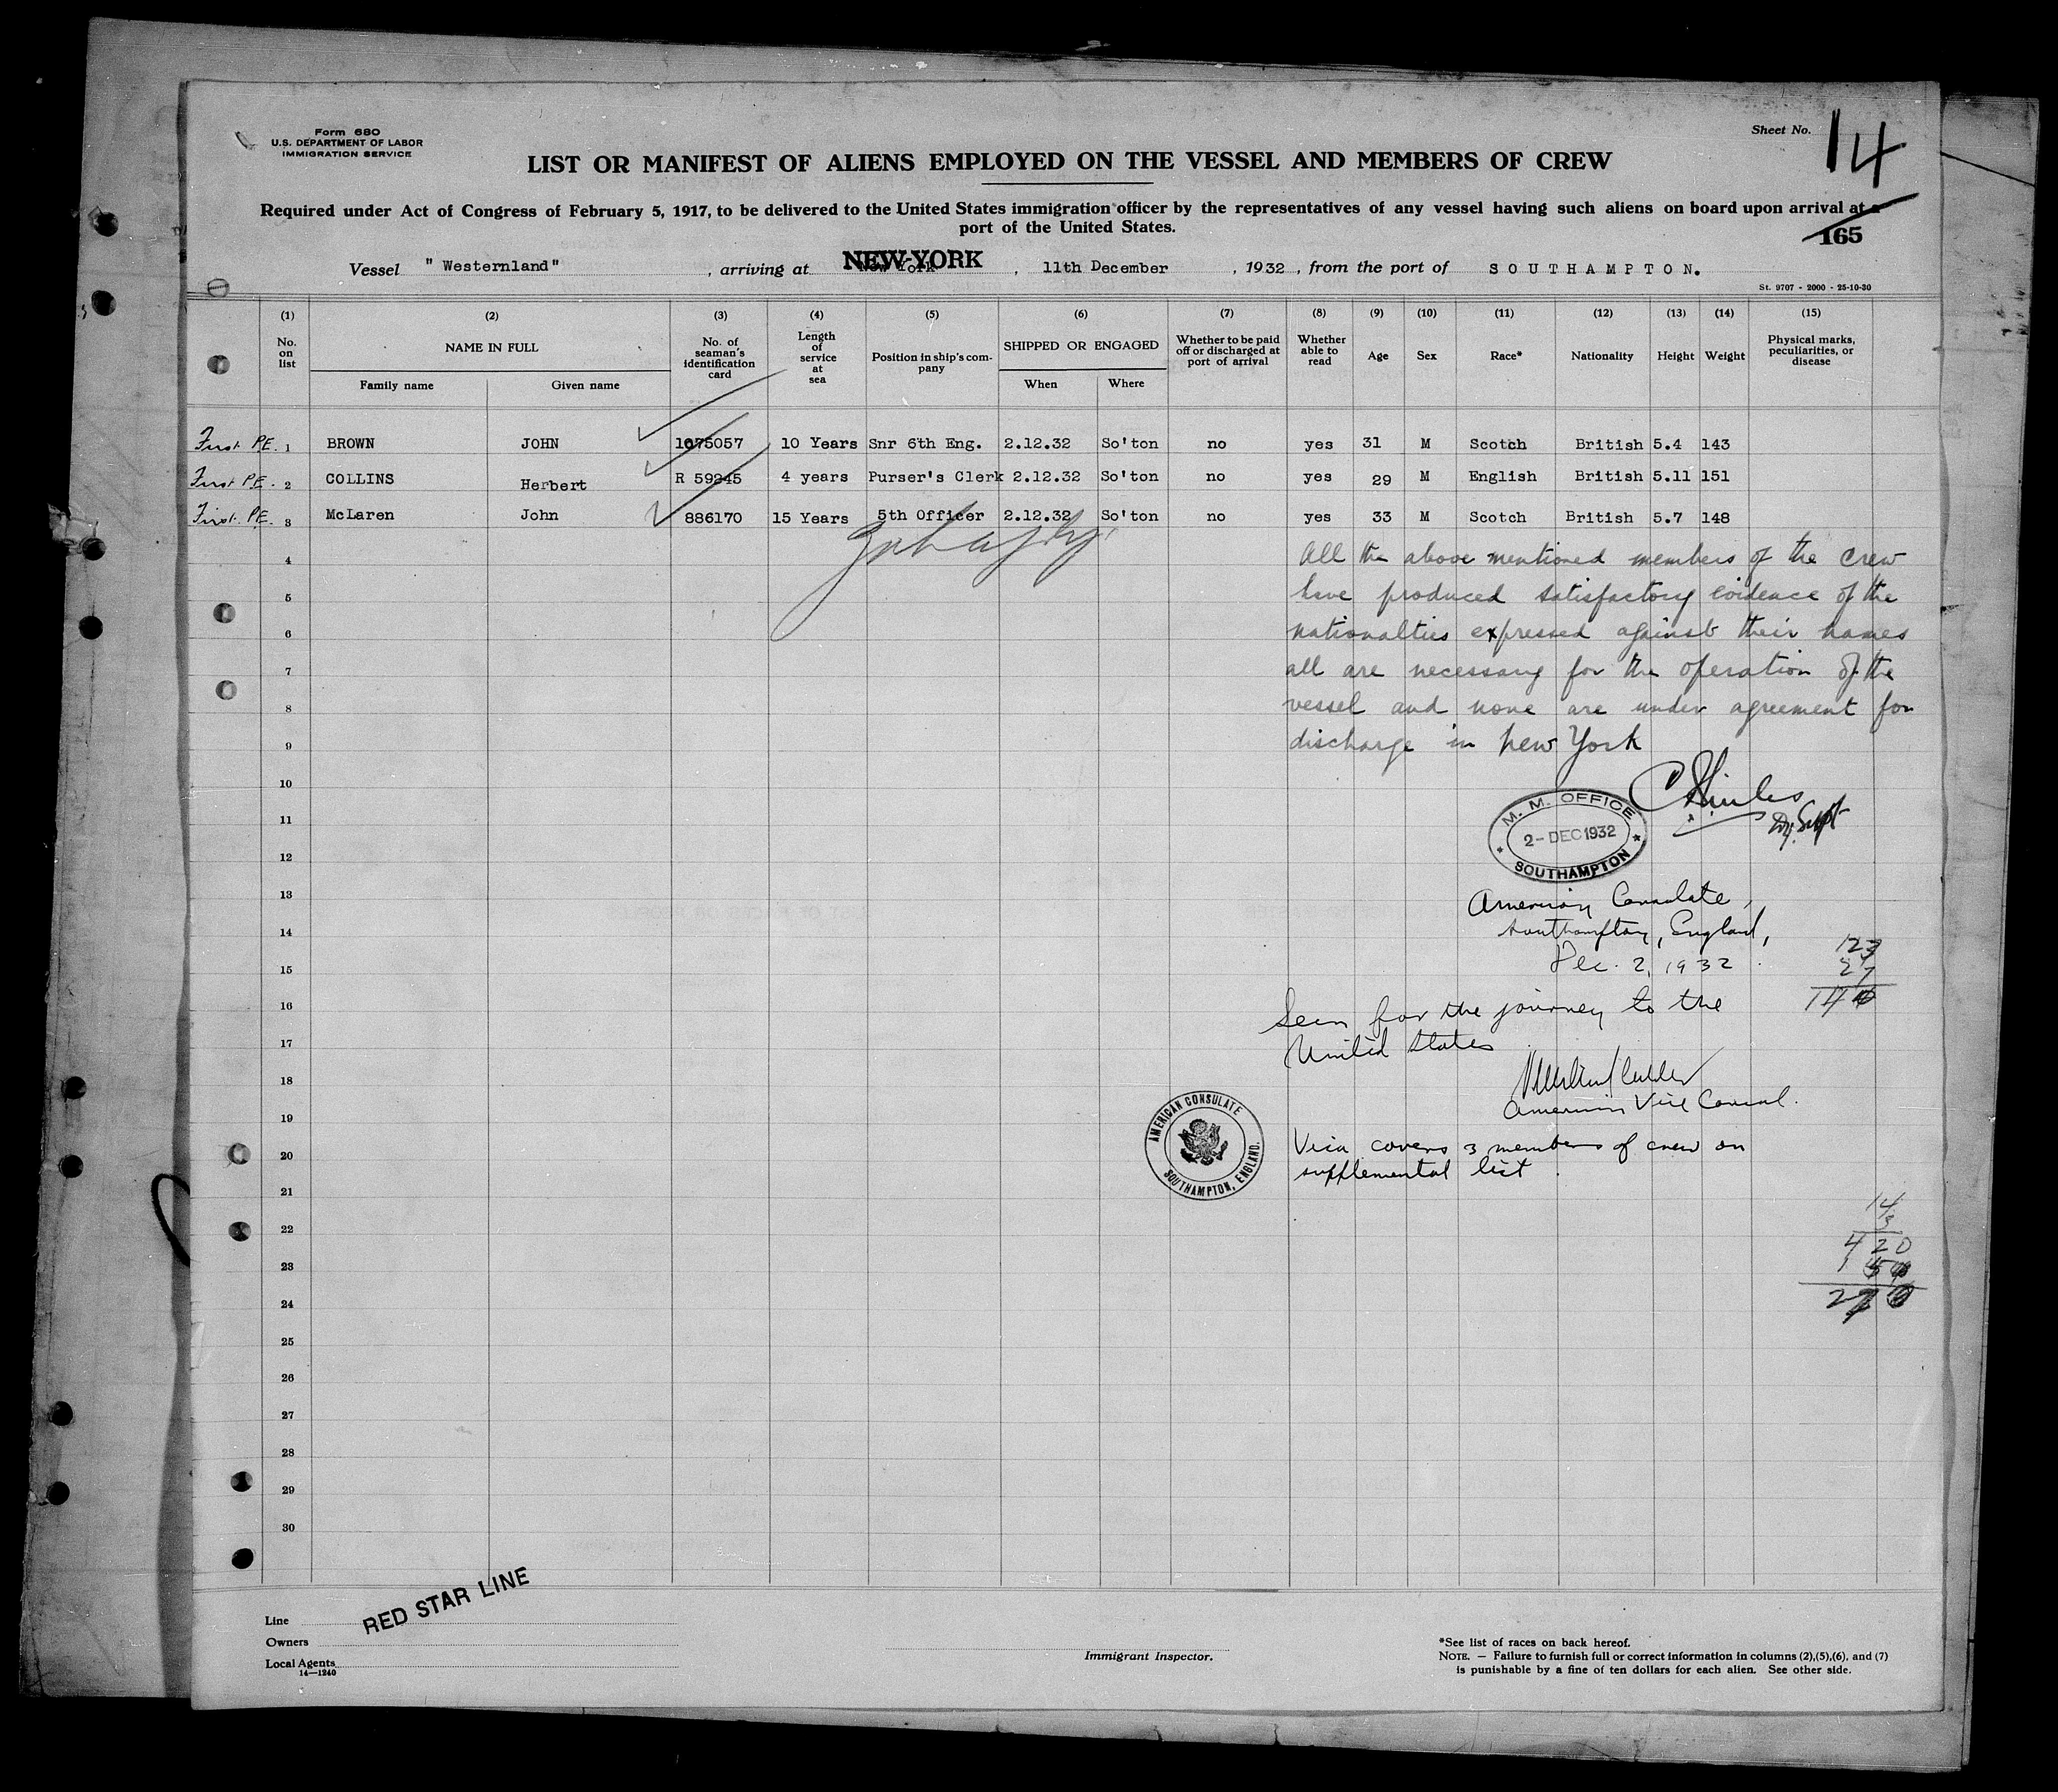 Form 680
U.S. DEPARTMENT OF LABOR
IMMIGRATION SERVICE
Sheet No. 14
LIST OR MANIFEST OF ALIENS EMPLOYED ON THE VESSEL AND MEMBERS OF CREW
Required under Act of Congress of February 5, 1917, to be delivered to the United States immigration officer by the representatives of any vessel having such aliens on board upon arrival at a
port of the United States.
165
Vessel " Westernland" , arriving at New York NEW YORK , 11th December , 1932 , from the port of SOUTHAMPTON.
St. 9707 - 2000 - 25-10-30
(1) (2) (3) (4) (5) (6) (7) (8) (9) (10) (11) (12) (13) (14) (15)
No. on list
NAME IN FULL
Family name
Given name
No. of seaman's identification card
Length of service at sea
Position in ship's company
SHIPPED OR ENGAGED
When
Where
Whether to be paid off or discharged at port of arrival
Whether able to read
Age
Sex
Race*
Nationality
Height
Weight
Physical marks, peculiarities, or disease
First P.E. 1 BROWN JOHN 1075057 10 Years Snr 6th Eng. 2.12.32 So'ton no yes 31 M Scotch British 5.4 143
First P.E. 2 COLLINS Herbert R 59245 4 years Purser's Clerk 2.12.32 So'ton no yes 29 M English British 5.11 151
First P.E. 3 McLaren John 886170 15 Years 5th Officer 2.12.32 So'ton no yes 33 M Scotch British 5.7 148
4
5
6
7
8
9
10
11
12
13
14
15
16
17
18
19
20
21
22
23
24
25
26
27
28
29
30
All the above mentioned members of the crew
have produced satisfactory evidence of the
nationalties expressed against their names
all are necessary for the operation of the
vessel and none are under agreement for
discharge in New York
Dy. Supt
M. M. OFFICE
2- DEC 1932
SOUTHAMPTON
American Consulate,
Southampton, England,
Dec. 2, 1932.
123
27
Seen for the journey to the
United States
American Vice Consul.
AMERICAN CONSULATE
SOUTHAMPTON, ENGLAND.
Visa covers 3 members of crew on
supplemental list.
14
3
420
Line
RED STAR LINE
Owners
Local Agents
14-1240
Immigrant Inspector.
*See list of races on back hereof.
NOTE. — Failure to furnish full or correct information in columns (2),(5),(6), and (7)
is punishable by a fine of ten dollars for each alien. See other side.